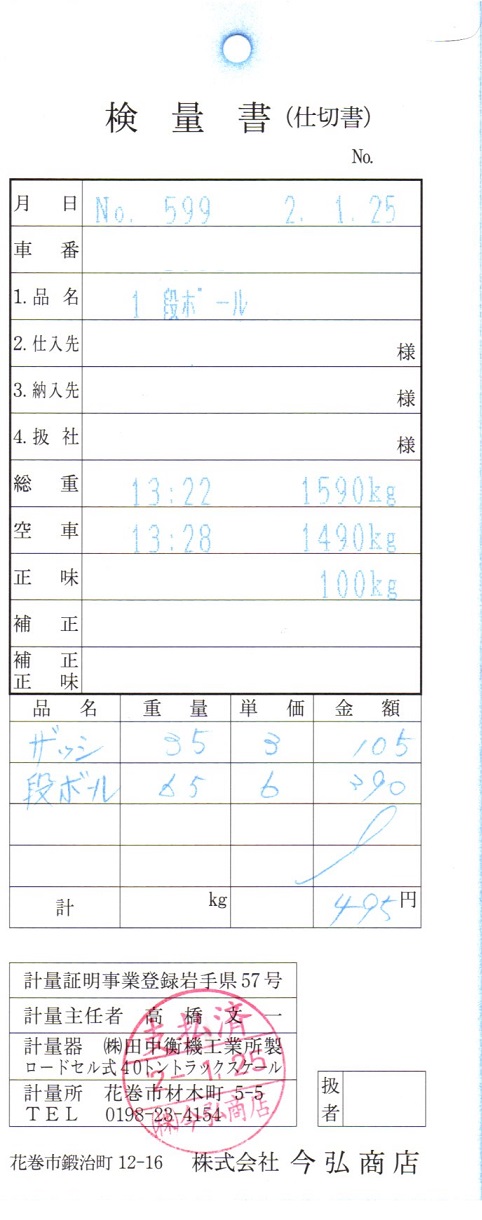 検量書(仕切書)
No.
月日 No. 599 2. 1. 25
車番
1.品名 1 段ボール
2.仕入先 様
3.納入先 様
4.扱社 様
総重 13:22 1590kg
空車 13:28 1490kg
正味 100kg
補正
補正
正味
品名 重量 単価 金額
ザッシ 35 3 105
段ボール 65 6 390
計 kg 495円
計量証明事業登録岩手県57号
計量主任者 高橋文一
計量器 ㈱田中衡機工業所製
ロードセル式40トントラックスケール
計量所 花巻市材木町 5-5
TEL 0198-23-4154
支払済
2.-1.25
㈱今弘商店
扱者
花巻市鍛治町 12-16 株式会社 今弘商店